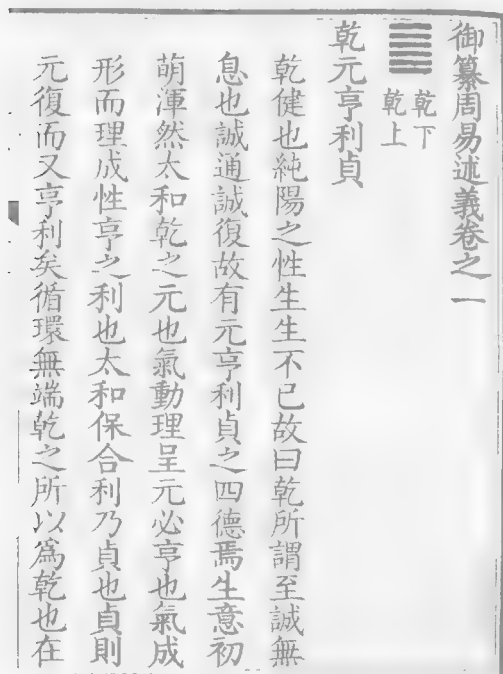 御纂周易述義卷之一
乾下
乾上
乾元亨利貞
乾健也純陽之性生生不已故曰乾所謂至誠無
息也誠通誠復故有元亨利貞之四德焉生意初
萌渾然太和乾之元也氣動理呈元必亨也氣成
形而理成性亨之利也太和保合利乃貞也貞則
元復而又亨利矣循環無端乾之所以為乾也在